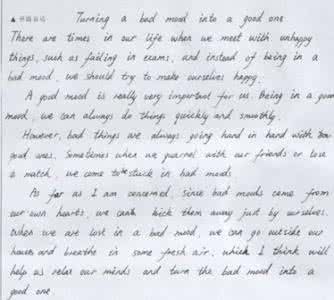 Turning a bad mood into a good one
There are times in our life when we meet with unhappy
things, such as failing in exams, and instead of being in a
bad mood, we should try to make ourselves happy.
A good mood is really very important for us. Being in a good
mood, we can always do things quickly and smoothly.
However, bad things are always going hand in hand with
good ones. Sometimes when we quarrel with our friends or lose
a match, we come to stuck in bad moods
As far as I am concerned, since bad moods come from
our own hearts, we can kick them away just by ourselves.
When we are lost in a bad mood, we can go outside our
house and breathe in some fresh air, which I think will
help us relax our minds and turn the bad mood into a
good one.